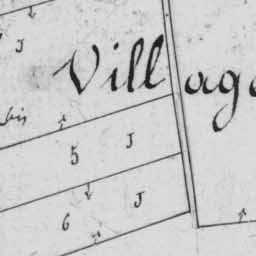 J
Village
bis
5 J
6 J